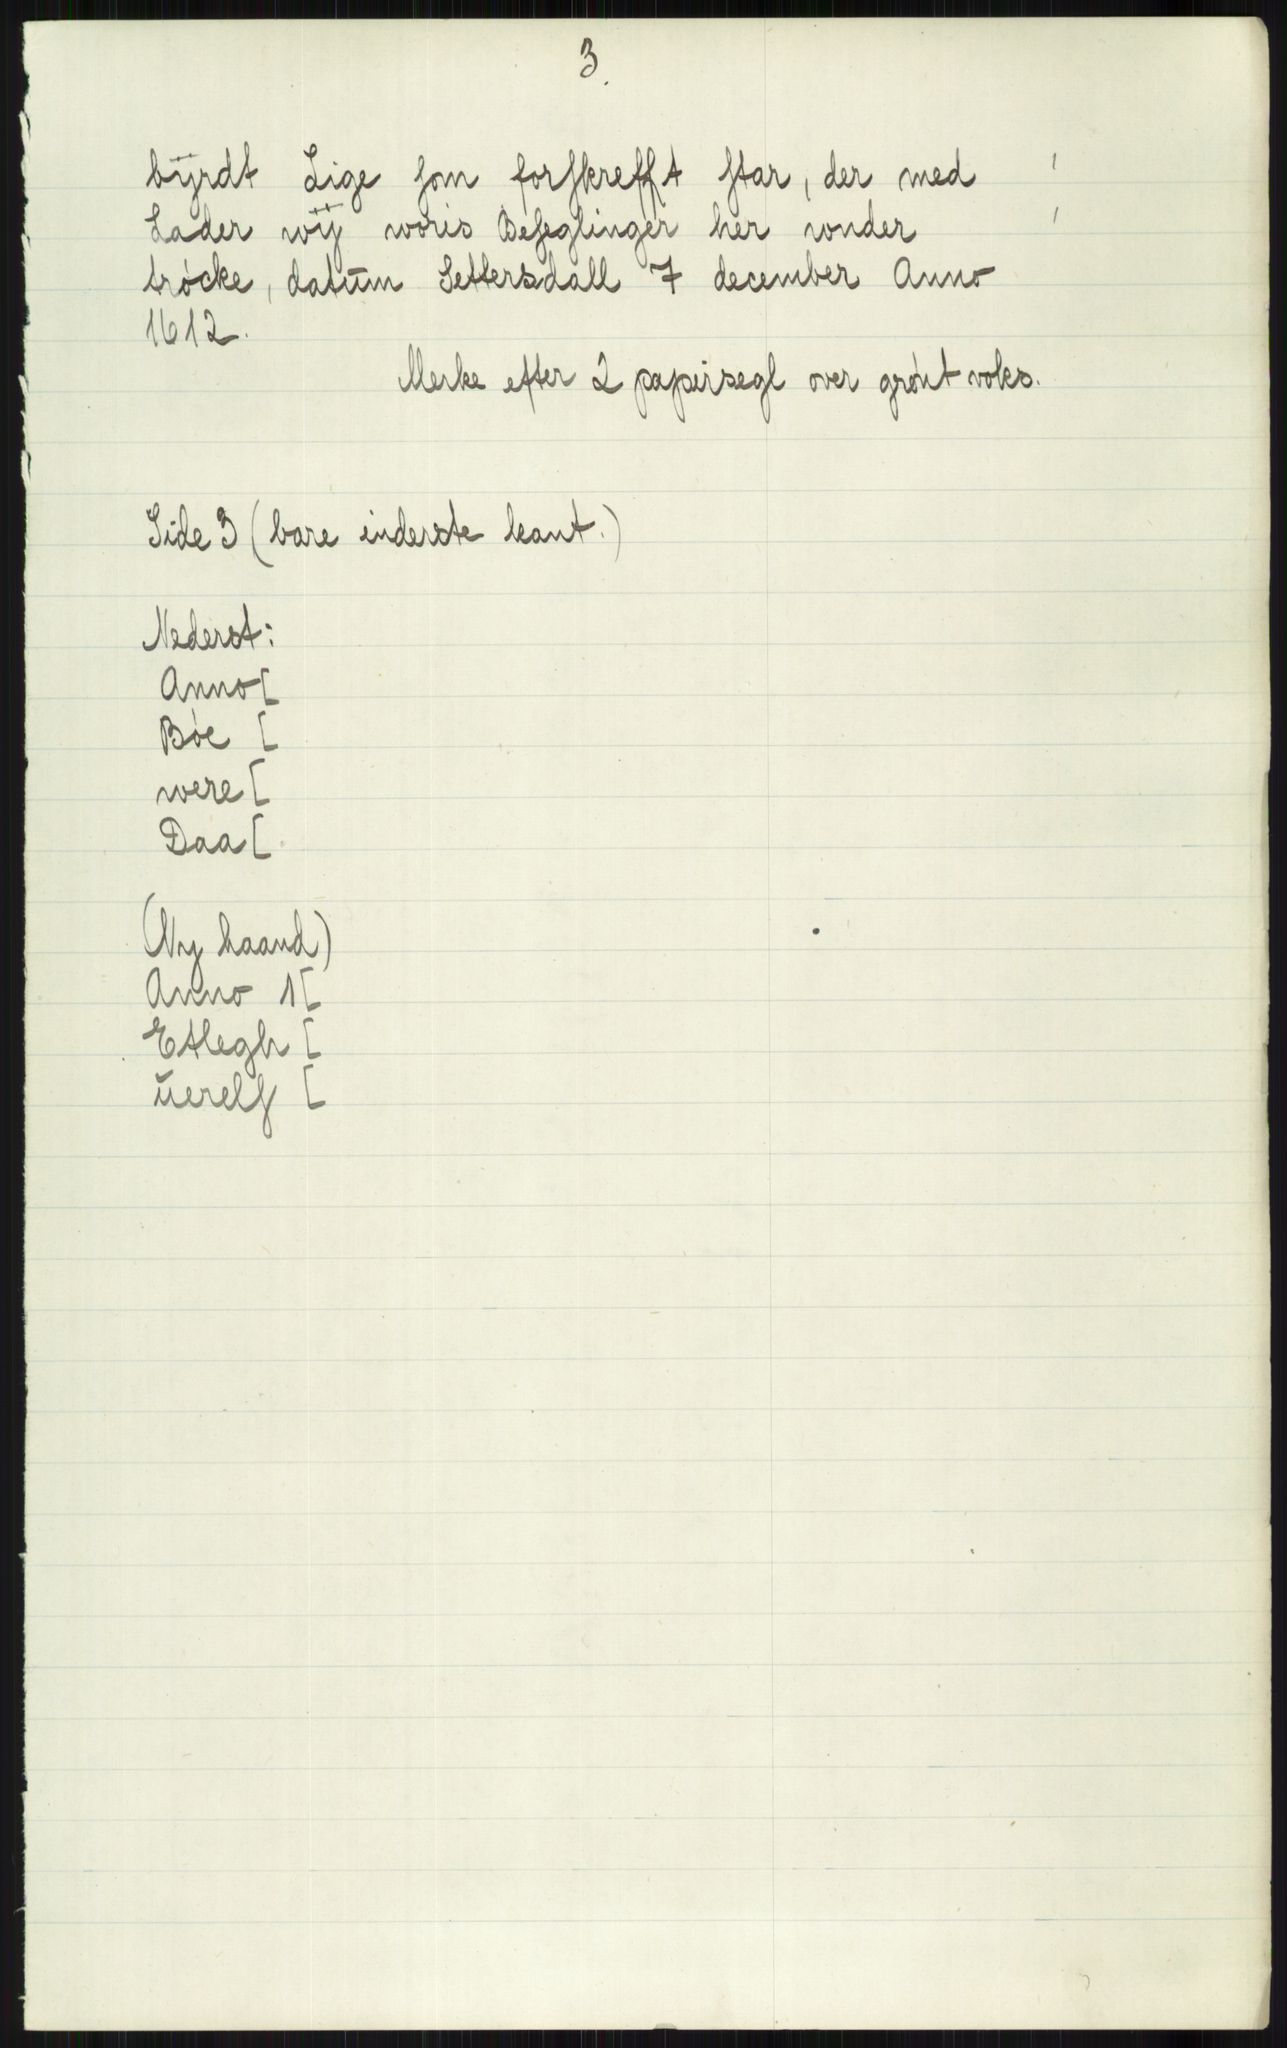 3.
bÿrdt Lige som forskrefft star, der med
Lader wÿ woris Beseglinger her wnder
trócke, datŭm Settersdall 7 december Anno
1612.
Merke efter 2 papirsegl over grónt voks.
Side 3 (bare inderste kant.)
Nederst:
Anno [
Bóe [
were [
Daa [
(Ny haand)
Anno 1[
Etlegh [
ŭerels [